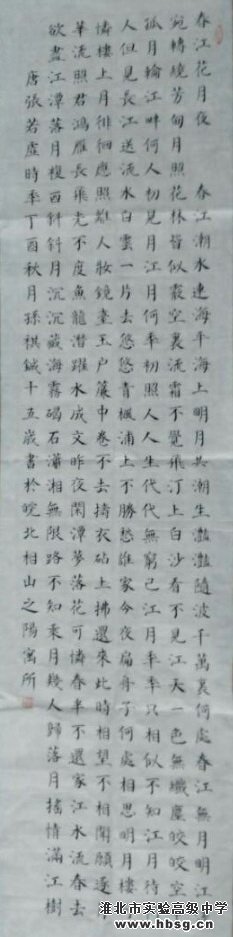 春江花月夜 春江潮水連海平海上明月共潮生灩灩隨波千萬裏何處春江無月明江
宛轉繞芳甸月照花林皆似霰空裏流霜不覺飛汀上白沙看不見江天一色無纖塵皎皎空
孤月輪江畔何人初見月江月何年初照人人生代代無窮已江月年年只相似不知江月待
人但見長江送流水白雲一片去悠悠青楓浦上不勝愁誰家今夜扁舟子何處相思明月樓
憐樓上月徘徊應照離人妝鏡臺玉户簾中卷不去搗衣砧上拂還來此時相望不相聞願逐
華流照君鴻雁長飛光不度魚龍潛躍水成文昨夜閑潭夢落花可憐春半不還家江水流春去
欲盡江潭落月複西斜斜月沉沉藏海霧碣石瀟湘無限路不知乘月幾人歸落月搖情滿江樹
唐張若虛時年丁酉秋月孫祺鋮十五歲書於皖北相山之陽寓所
淮北市实验高级中学
www.hbsg.cn